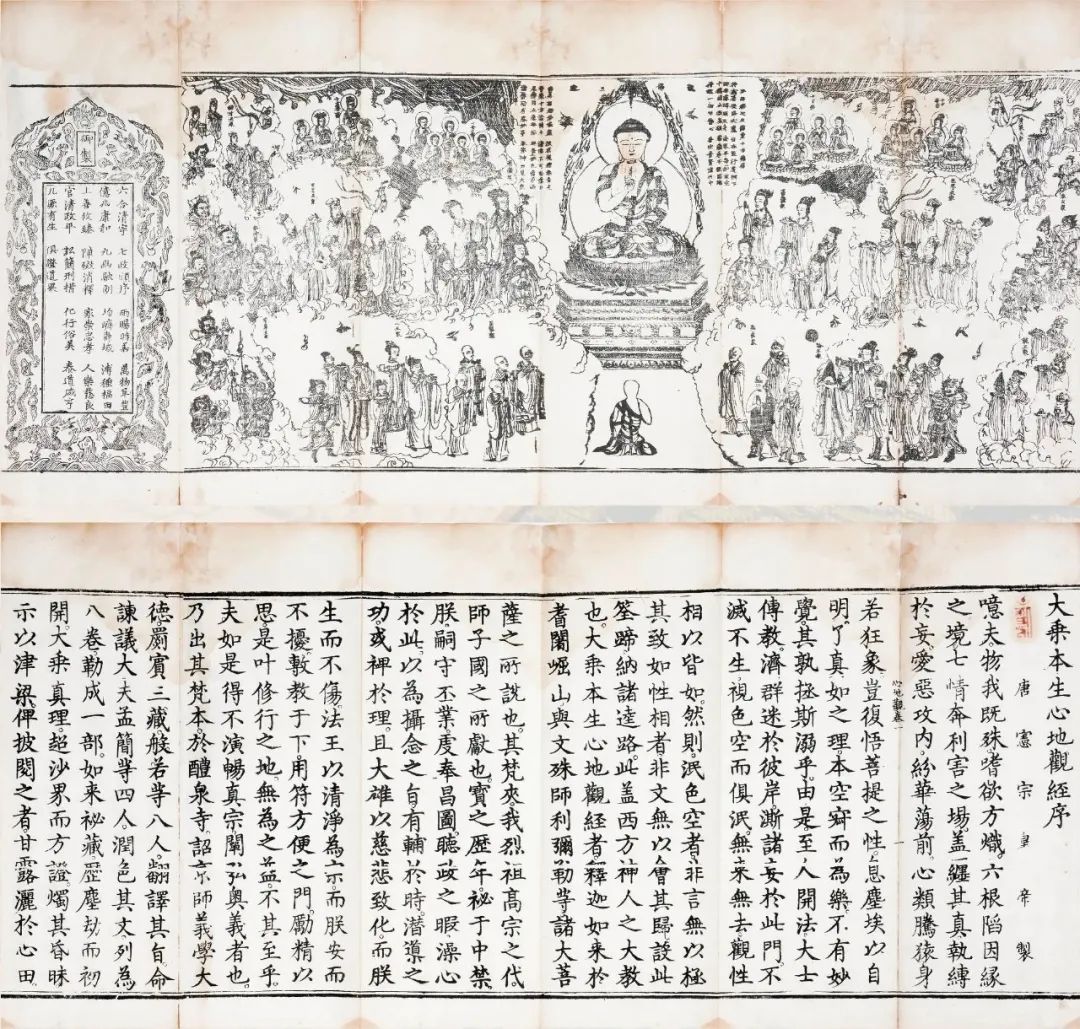 御製
六合清寧 七政順序 雨暘時若 萬物阜豐
億兆康和 九幽融朗 均躋壽域 溥種福田
上善攸臻 障礙消釋 家崇忠孝 人樂慈良
官清政平 訟簡刑措 化行俗美 泰道咸亨
凡厥有生 俱證道果
大乘本生心地觀經序
唐憲宗皇帝製
噫夫。物我既殊。嗜欲方熾。六根陷因緣
之境。七情奔利害之場。蓋纏其真執縛
於妄。愛惡攻內。紛華蕩前。心類騰猿。身
心地觀卷一 一
若狂象。豈復悟菩提之性。息塵埃以自
明。了真如之理。本空寂而為樂。不有妙
覺。其孰拯斯溺乎。由是。至人開法。大士
傳教。濟群迷於彼岸。澌諸妄於此門。不
滅不生。視色空而俱泯。無來無去。觀性
相以皆如。然則。泯色空者。非言無以極
其致。如性相者。非文無以會其歸。設此
筌蹄。納諸逵路。此蓋西方神人之大教
也。大乘本生心地觀經者。釋迦如來於
耆闍崛山。與文殊師利彌勒等諸大菩
薩之所說也。其梵夾。我烈祖高宗之代。
師子國之所獻也。寶之歷年。祕于中禁。
朕嗣守丕業。虔奉昌圖。聽政之暇。澡心
於此。以為攝念之旨。有輔於時。潛導之
功。或裨於理。且大雄以慈悲致化。而朕
生而不傷。法王以清淨為宗。而朕安而
不擾。敷教于下。用符方便之門。勵精以
思。是叶修行之地。無為之益。不其至乎。
夫如是得不演暢真宗。闡弘奧義者也。
乃出其梵本。於醴泉寺。詔京師義學大
德。罽賓三藏般若等八人。翻譯其旨。命
諫議大夫孟簡等四人。潤色其文。列為
八卷。勒成一部。如來祕藏。歷塵劫而初
開。大乘真理。超沙界而方證。燭其昏昧
示以津梁。俾披閱之者。甘露灑於心田